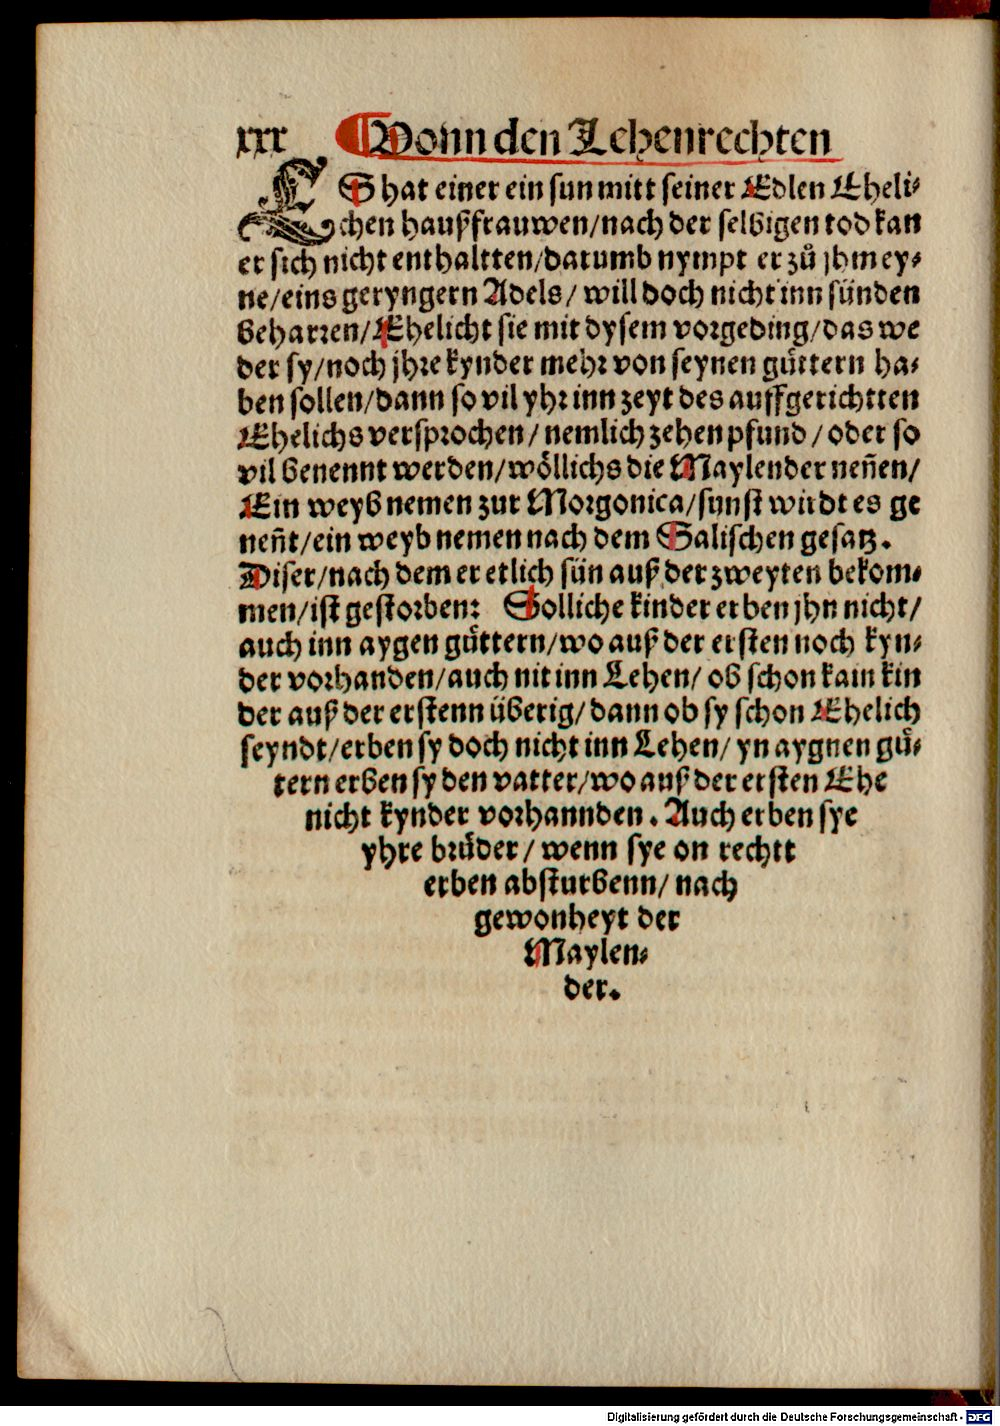 xxx Vonn den Lehenrechten
ES hat einer ein sun mitt seiner Edlen Eheli⸗
chen haußfrauwen/nach der selbigen tod kan
er sich nicht enthaltten/darumb nympt er zů jhm ey⸗
ne/eins geryngern Adels/ will doch nicht inn sünden
beharren/Ehelicht sie mit dysem vorgeding/das we
der sy/noch jhre kynder mehr von seynen gůttern ha⸗
ben sollen/dann so vil yhr inn zeyt des auffgerichtten
Ehelichs versprochen/ nemlich zehen pfund/oder so
vil benennt werden/wöllichs die Maylender neñen/
Ein weyb nemen zur Morgonica/sunst wirdt es ge
neñt/ein weyb nemen nach dem Salischen gesatz.
Diser/nach dem er etlich sün auß der zweyten bekom⸗
men/ist gestorben: Solliche kinder erben jhn nicht/
auch inn aygen gůttern/wo auß der ersten noch kyn⸗
der vorhanden/auch nit inn Lehen/ ob schon kain kin
der auß der erstenn überig/dann ob sy schon Ehelich
seyndt/erben sy doch nicht inn Lehen/ yn aygnen gů⸗
tern erben sy den vatter/wo auß der ersten Ehe
nicht kynder vorhannden. Auch erben sye
yhre brůder/ wenn sye on rechtt
erben absturbenn/ nach
gewonheyt der
Maylen⸗
der.
Digitalisierung gefördert durch die Deutsche Forschungsgemeinschaft - DFG